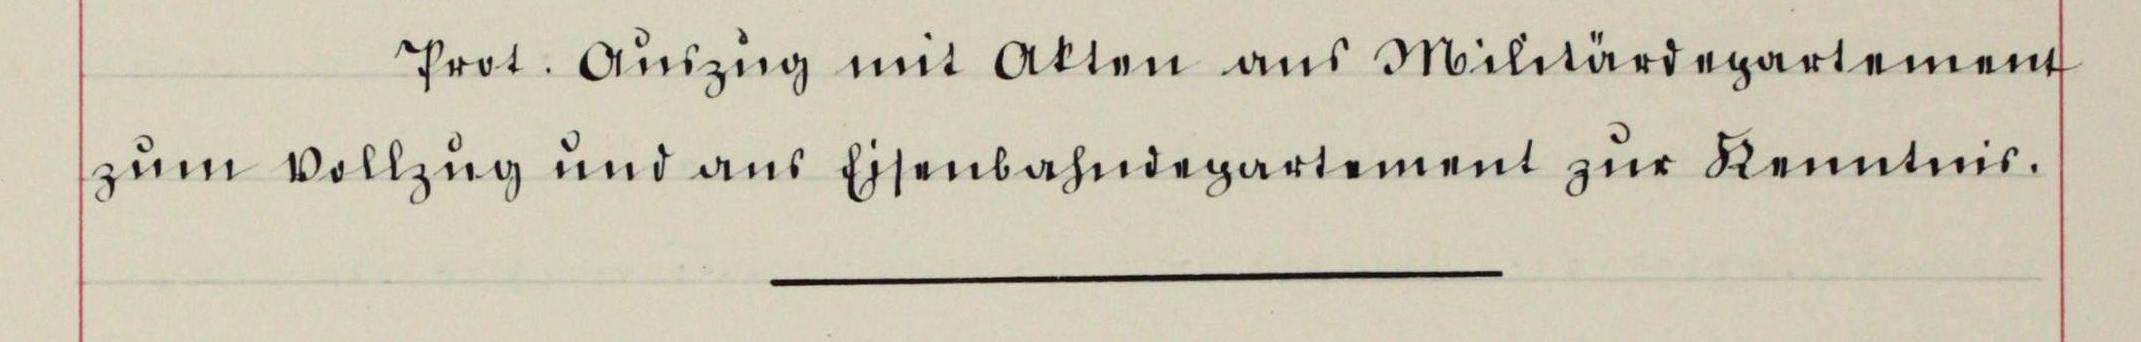 Prot. Auszug mit Akten ans Militärdepartement
zum Vollzug und ans Eisenbahndepartement zur Kenntnis.